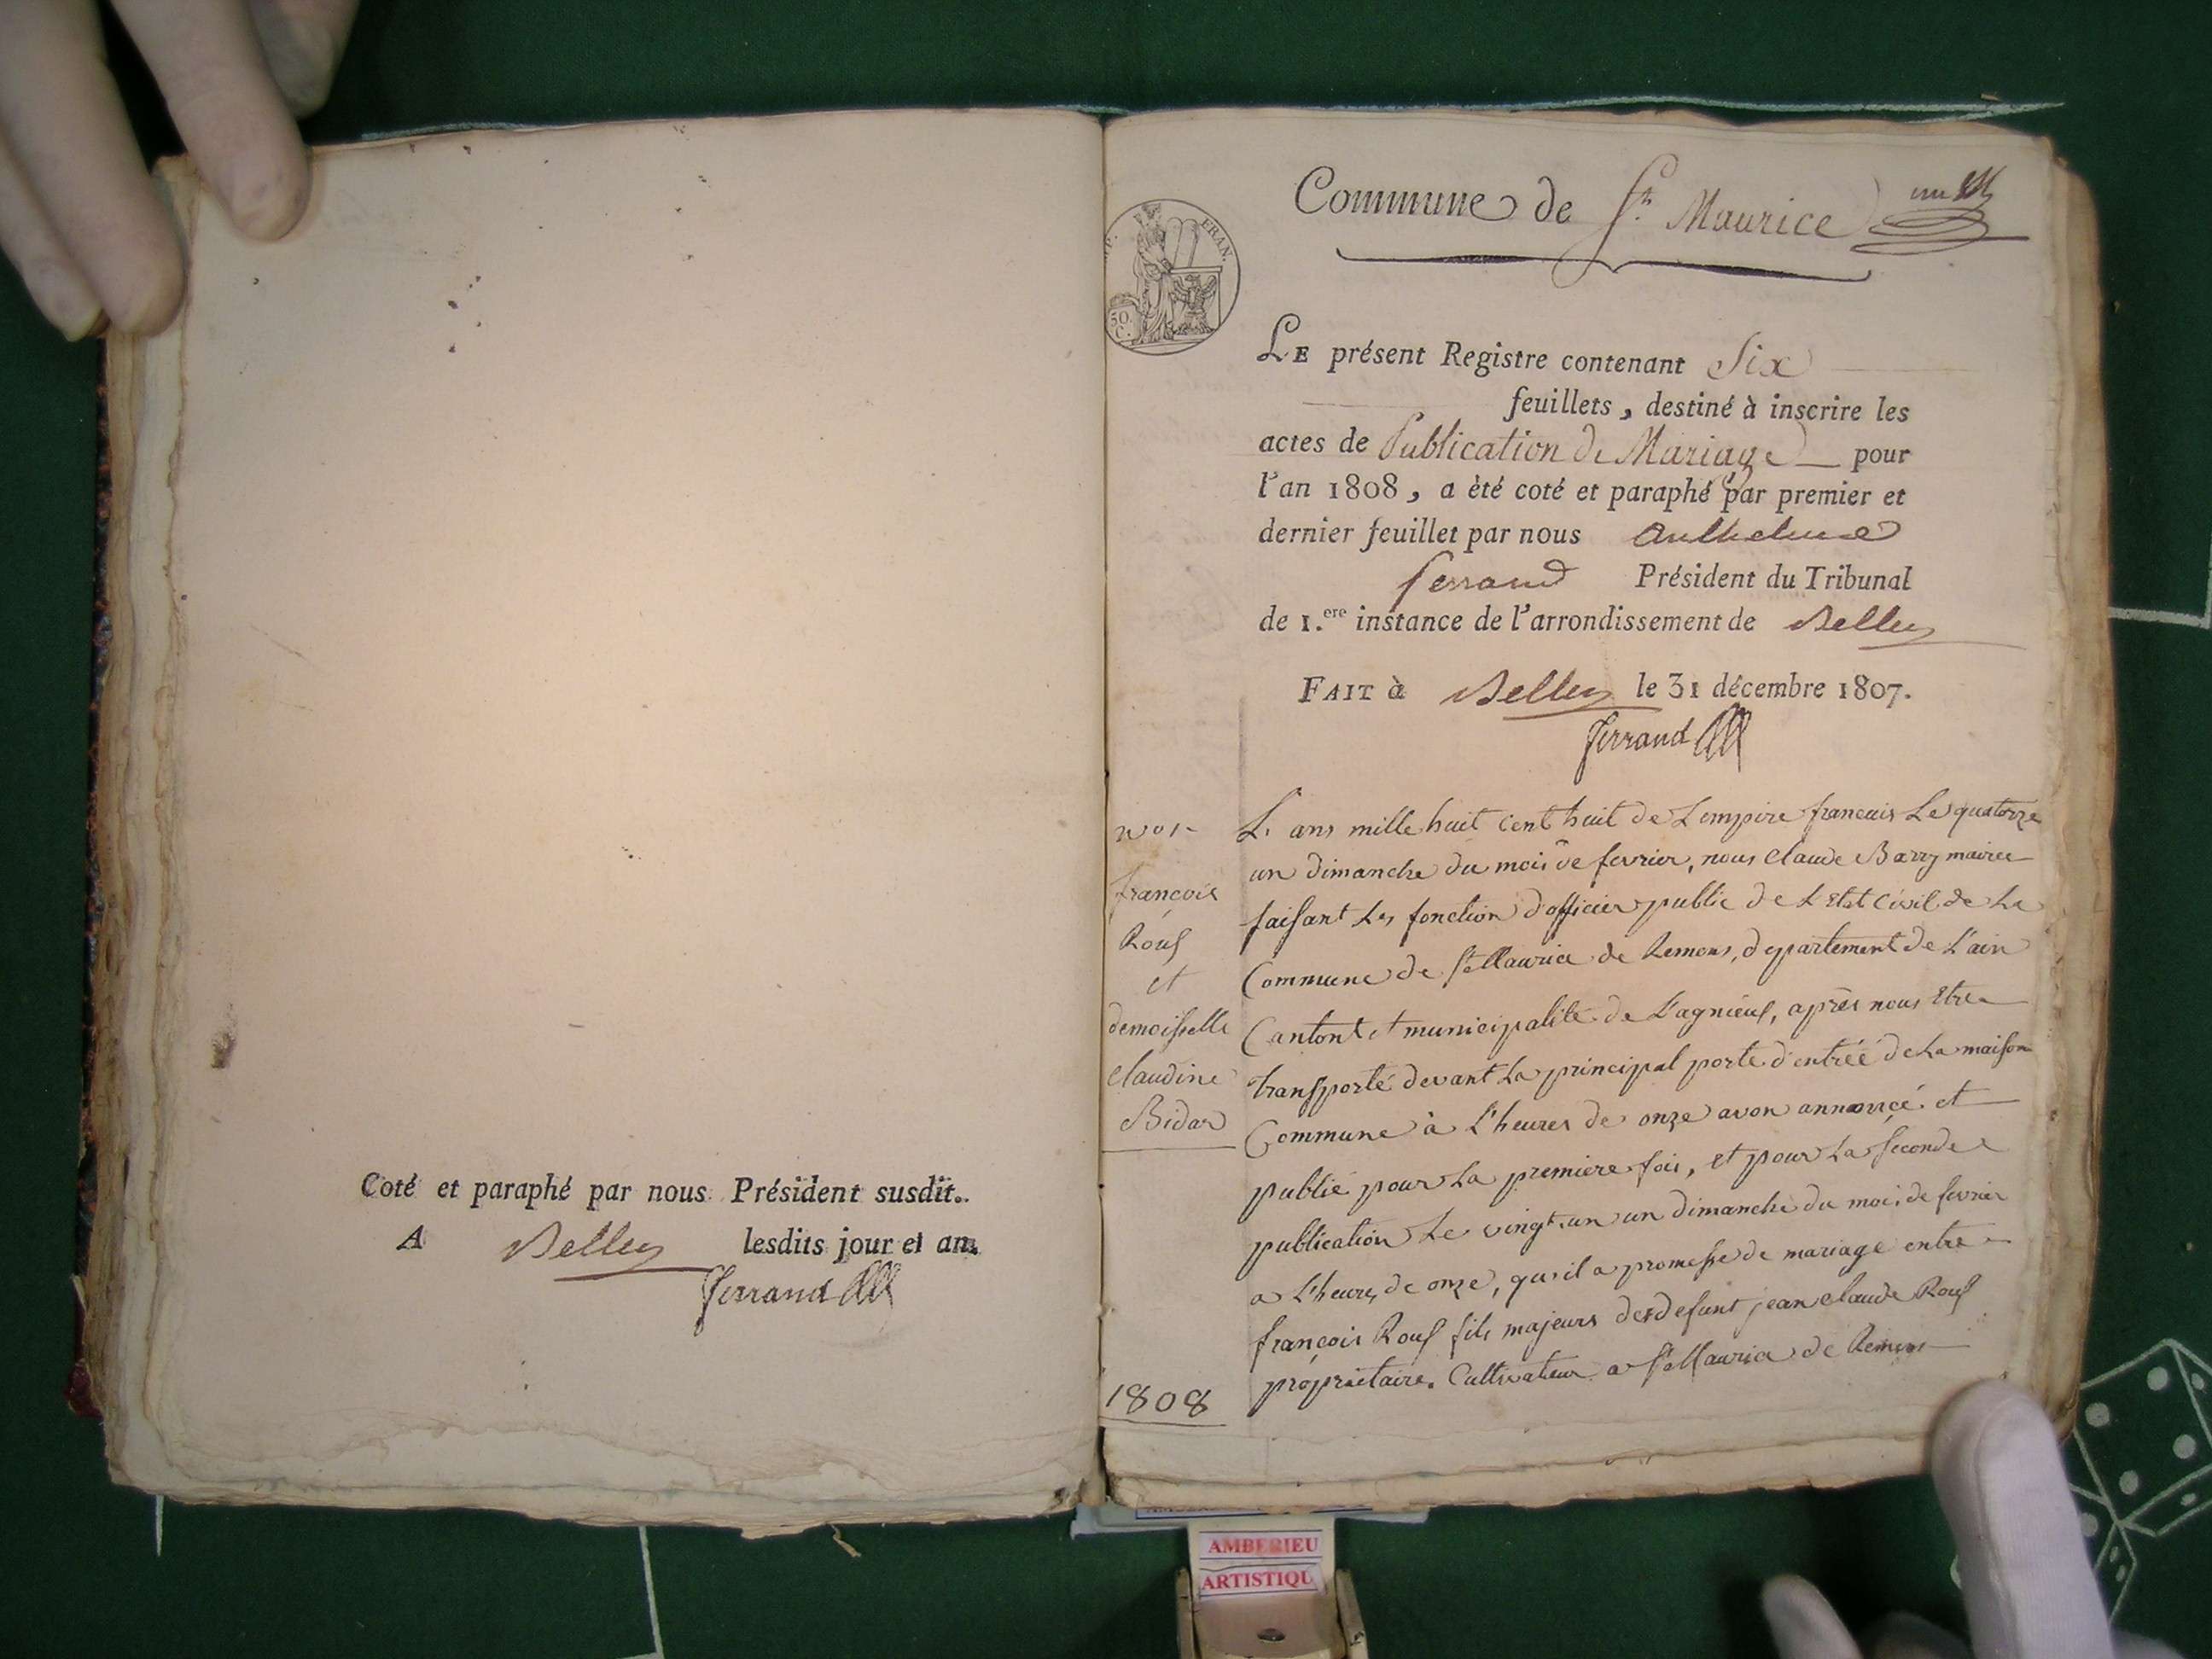 Coté et paraphé par nous Président susdit.
A Belley lesdits jour et an.
Ferrand
Commune de St. Maurice
FRAN.
50.
C.
LE présent Registre contenant Six
feuillets, destiné à inscrire les
actes de Publication de Mariage pour
l'an 1808, a été coté et paraphé par premier et
dernier feuillet par nous Anthelme
ferrand Président du Tribunal
de 1.ere instance de l'arrondissement de Belley
FAIT à Belley le 31 décembre 1807.
Ferrand
françois
Rouf
et
demoiselle
claudine
Bidar
L. ans mille huit cent huit de L'empire francais Le quatorze
un dimanche du mois de fevrier, nous claude Barry mairee
faisant Les fonction d'officier public de L'Etat civil de La
Commune de St Maurice de Remens, departement de L'ain
Cantont et municipalité de Lagnieuf, après nous Etre
transporté devant La principal porte d'entrée de La maison
Commune à L'heures de onze avon annoncé et
publié pour La premiere fois, et pour La seconde
publication Le vingt un un dimanche du mois de fevrier
a L'heures de onze, qu'il a promesse de mariage entre
françois Rouf fils majeurs de defunt jean claude Rouf
propriétaire. Cultivateur a St Maurice de Remens
1808
AMBERIEU
ARTISTIQU